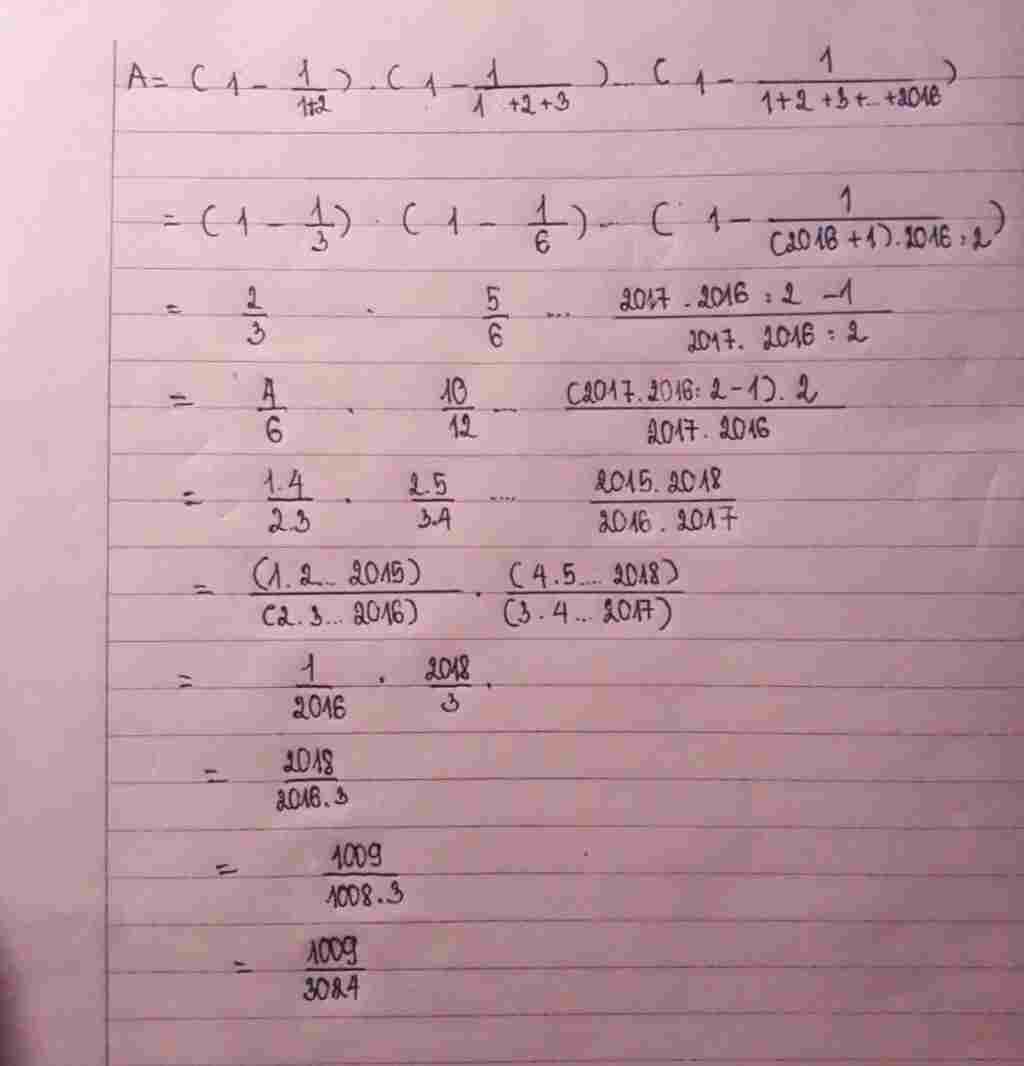 A = ( 1 - 1/(1+2) ) . ( 1 - 1/(1+2+3) ) ... ( 1 - 1/(1+2+3+...+2016) )
= ( 1 - 1/3 ) . ( 1 - 1/6 ) ... ( 1 - 1/((2016+1).2016:2) )
= 2/3 . 5/6 ... (2017.2016:2 - 1)/(2017.2016:2)
= 4/6 . 10/12 ... ((2017.2016:2-1).2)/(2017.2016)
= (1.4)/(2.3) . (2.5)/(3.4) .... (2015.2018)/(2016.2017)
= (1.2...2015)/(2.3...2016) . (4.5....2018)/(3.4...2017)
= 1/2016 . 2018/3 .
= 2018/(2016.3)
= 1009/(1008.3)
= 1009/3024